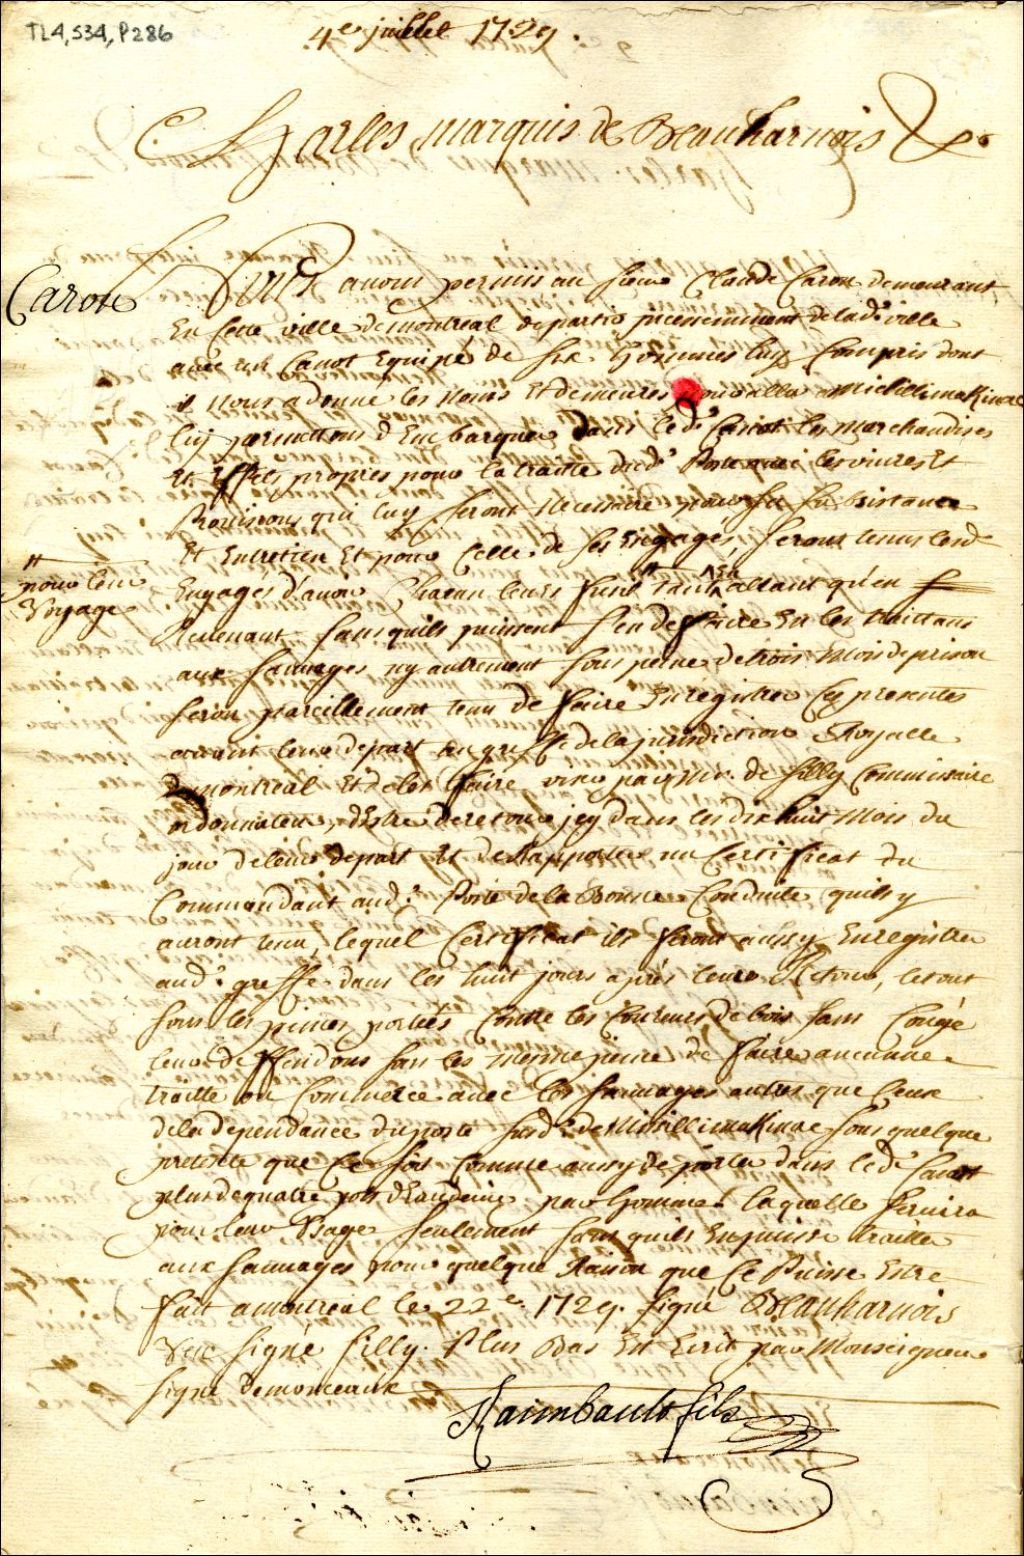 TL4,S34,P286
4e juillet 1729.
Charles marquis de Beauharnois &c.
Caron
Nous avons permis au sieur Claude Caron demeurant
En Cette ville de montreal de partir incessemment de lad.e ville
avec un Canot Equipé de six hommes luy Compris dont
il nous a donné les noms Et demeures pour aller a Michillimakinac
luy permettons d'Embarquer dans led.t Canot les marchandises
Et Effets propres pour la traitte dud.t Poste avec les vivres Et
Provisions qui luy seront necessaire pour sa subsistance
Et Entretien Et pour Celle de ses Engagés, seront tenus lesd.
Engagés d'avoir Chacun leurs fusil tant en allant qu'en
pour leur
Voyage
Revenant sans quils puissent s'en deffaire En les traittans
aux sauvages ny autrement sous peine de trois mois de prison
seron pareillement tenu de faire Enregistrer Ces presentes
avant leur depart au greffe de la jurisdiction Royalle
de montreal Et de les faire viser par Mr. de Silly Commissaire
ordonnateur, d'Estre de retour icy dans les dix huit mois du
jour de leur depart Et de Rapporter un Certificat du
Commandant aud.t Poste de la Bonne Conduite quils y
auront tenu, lequel Certificat ils feront aussy Enregistrer
aud.t greffe dans les huit jours aprés leur Retour, le tout
sous les peines portées Contre les Coureurs de bois sans Congé
leur deffendons sous les mesme peine de faire aucune
traitte ou Commerce avec les sauvages autres que Ceux
de la dependance du poste susd.t de Michillimakinac sous quelque
pretexte que Ce soit Comme aussy de porter dans led.t Canot
plus de quatre pots d'Eau de vie par homme laquelle servira
pour leur Usage seulement sans quils En puisse traitter
aux sauvages pour quelque Raison que Ce Puisse Estre
fait a montreal le 22e. 1729. signé Beauharnois
Veu signé Silly. Plus Bas Est Ecrit par Monseigneur
signé demonceaux
Raimbault fils